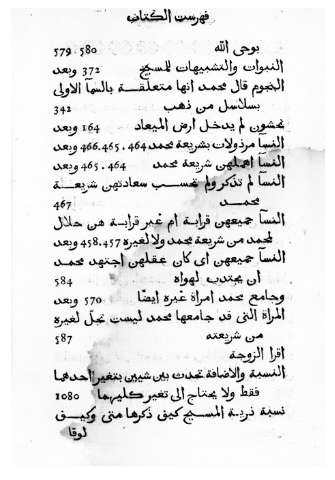 فهرست الكتاب
بوحي الله 580 579
النبوات والتشبيهات للمسيح 372 وبعد
النجوم قال محمد انها متعلقة بالسمآ الاولي
بسلاسل من ذهب 342
نحشون لم يدخل ارض الميعاد 164 وبعد
النسآ مرذولات بشريعة محمد 464. 465. 466 وبعد
النسآ اهملهن شريعة محمد 464. 465 وبعد
النسآ لم تذكر ولم تحسب سعادتهن شريعة
محمد 467
النسآ جميعهن قرابة ام غير قرابة هن حلال
لمحمد من شريعة محمد ولا لغيره 457. 458 وبعد
النسآ جميعهن اى كان عقلهن اجتهد محمد
ان يجتذب لهواه 584
وجامع محمد امراة غيره ايضا 570 وبعد
المراة التى قد جامعها محمد ليست تحل لغيره
من شريعته 587
اقرا الزوجة
النسبة والاضافة تحدث بين شيين بتغير احدهما
فقط ولا يحتاج الى تغير كليهما 1080
نسبة ذرية المسيح كيف ذكرها متى وكيف
لوقا